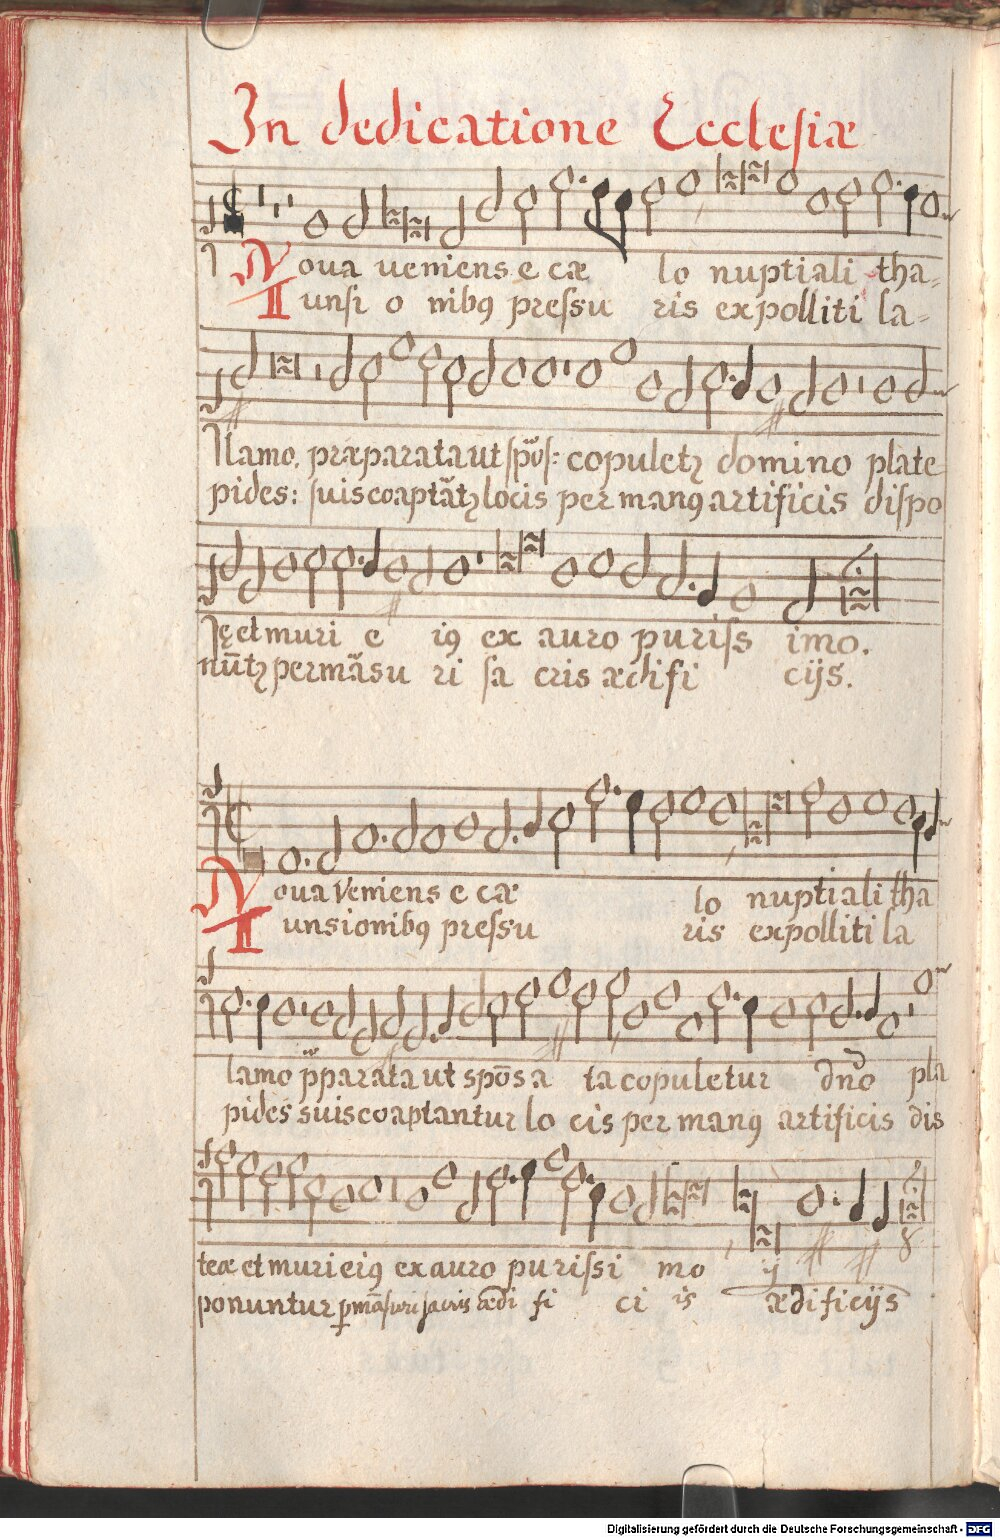 In dedicatione Ecclesiæ
Noua ueniens e cæ lo nuptiali tha-
Tunsi o nibꝯ pressu ris expolliti la-
lamo, præparata ut spōs: copuletꝫ domino plate
pides: suis coaptātꝫ locis per manꝯ artificis dispo
ę et muri e iꝯ ex auro puriss imo.
nūtꝫ permāsu ri sa cris ædifi cijs.
Noua Veniens e cæ lo nuptiali tha
Tunsionibꝯ pressu ris expolliti la
lamo p̄parata ut spōsa ta copuletur dn̄o pla
pides suis coaptantur lo cis per manꝯ artificis dis
teæ et muri eiꝯ ex auro purissi mo ij
ponuntur ꝑmāsuri sacris ædi fi ci is ædificijs
Digitalisierung gefördert durch die Deutsche Forschungsgemeinschaft - DFG